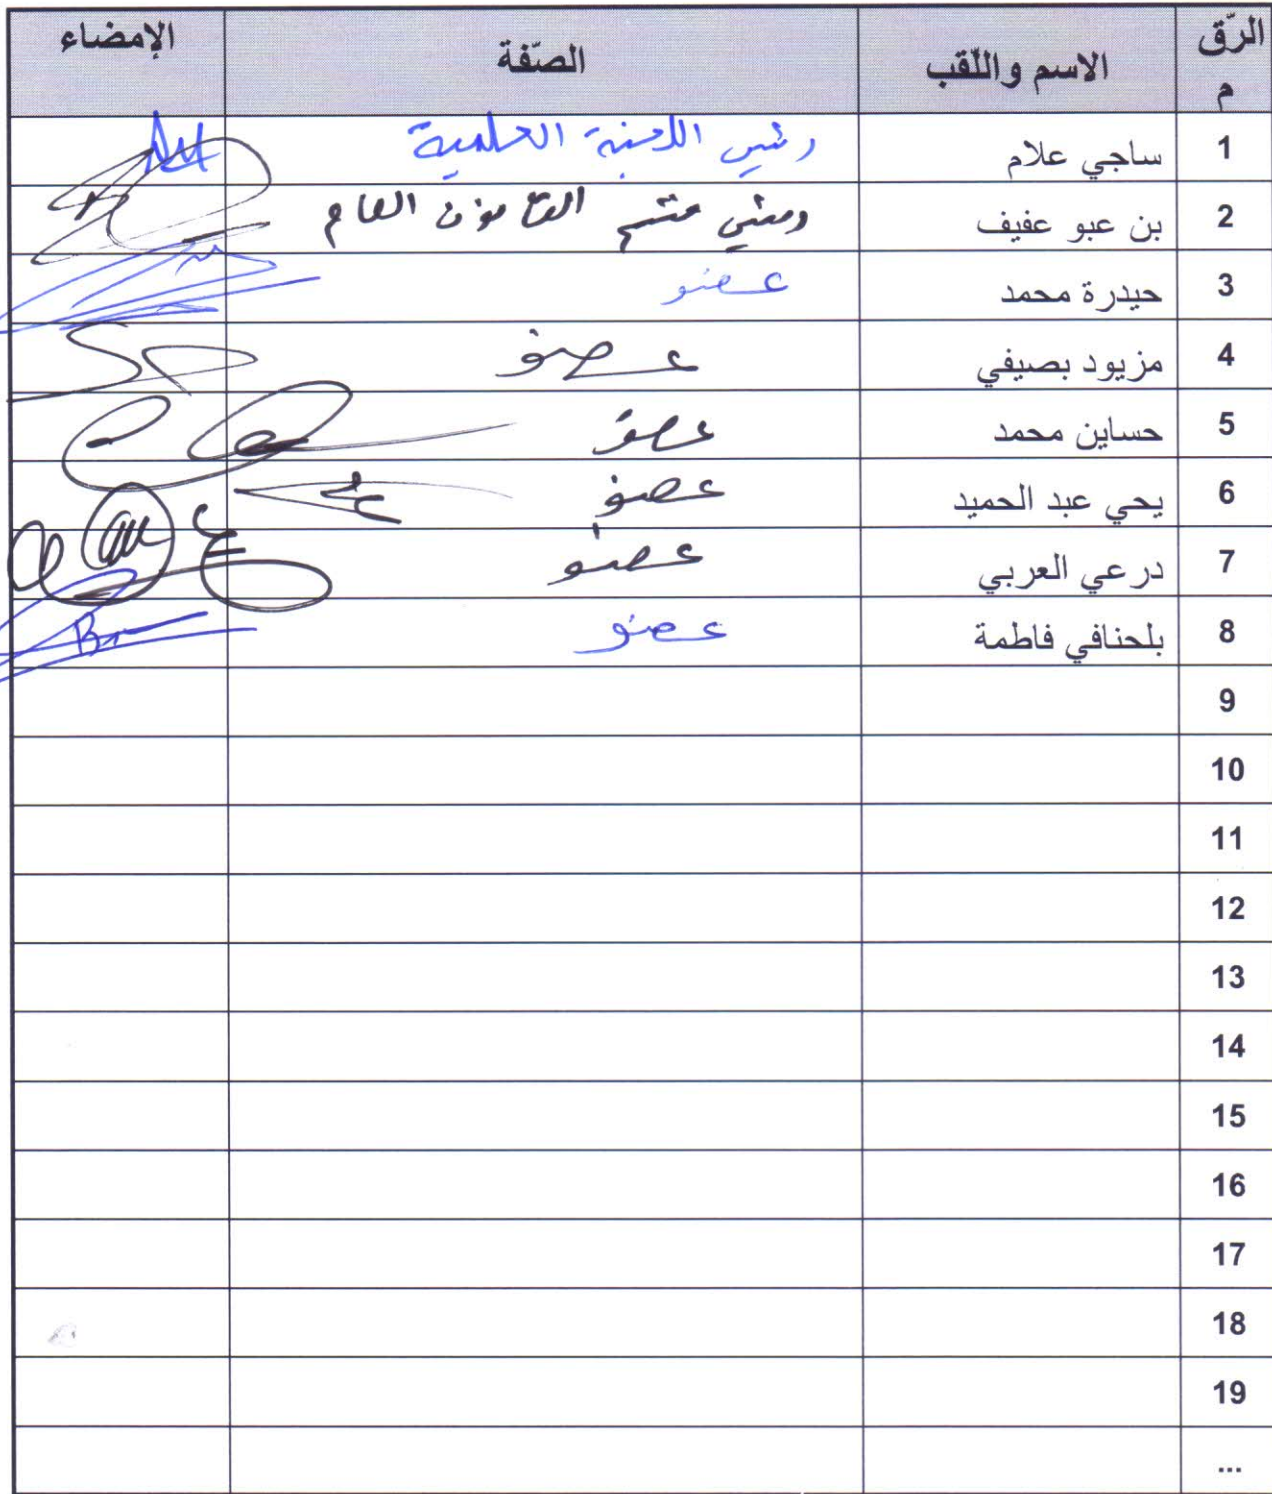 الرّق م الاسم واللّقب الصّفة الإمضاء
1 ساجي علام رئيس اللجنة العلمية
2 بن عبو عفيف رئيس قسم القانون العام
3 حيدرة محمد عضو
4 مزيود بصيفي عضو
5 حساين محمد عضو
6 يحي عبد الحميد عضو
7 درعي العربي عضو
8 بلحنافي فاطمة عضو
9
10
11
12
13
14
15
16
17
18
19
...